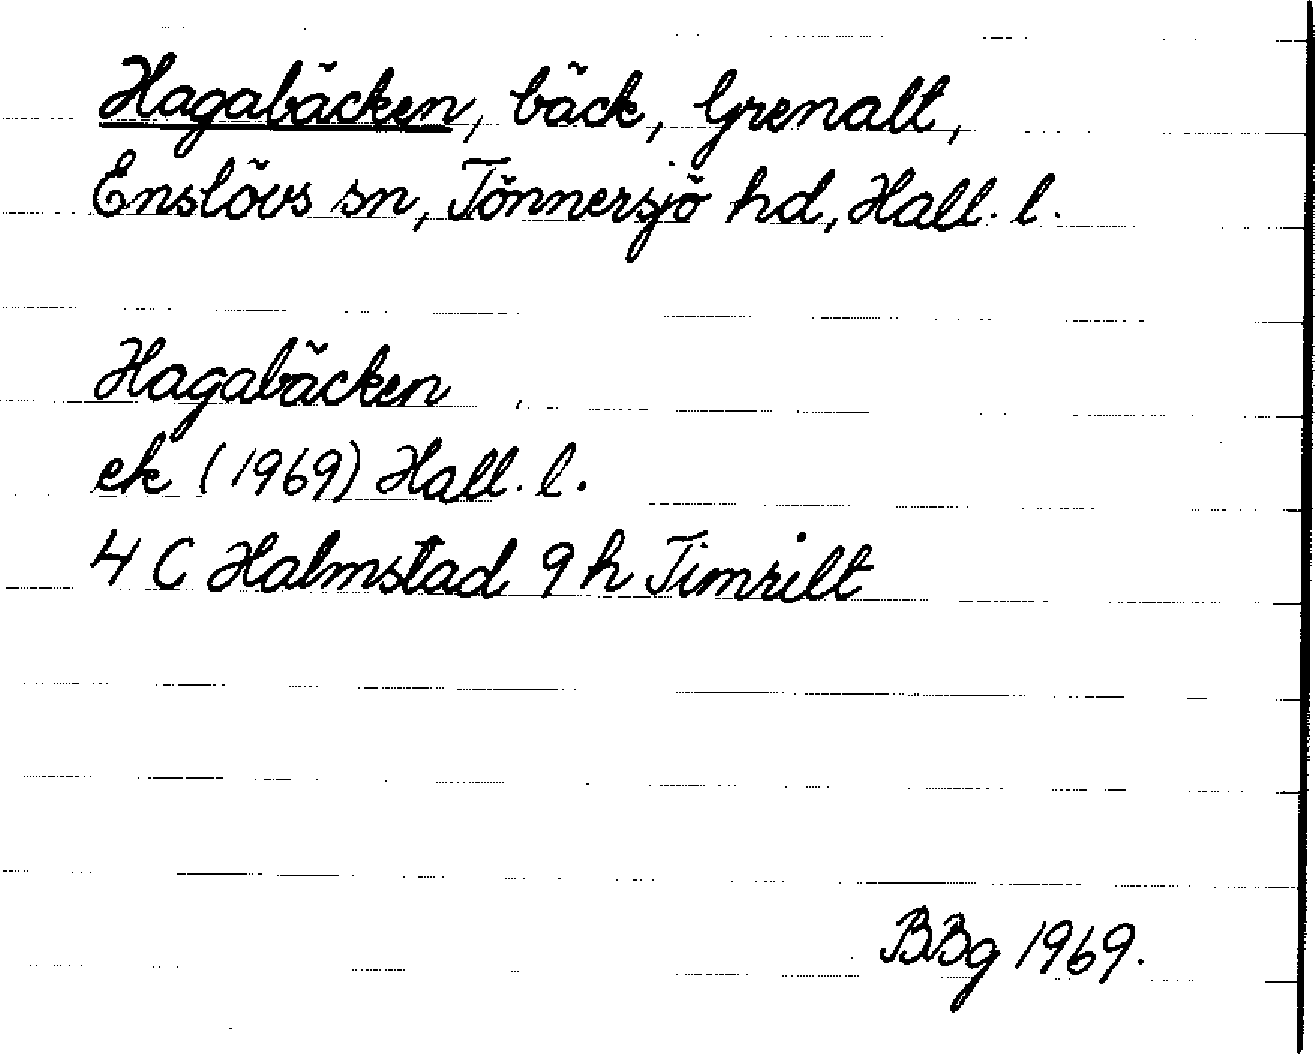 Hagabäcken, bäck, Grenalt,
Enslövs sn, Tönnersjö hd, Hall. l.
Hagabäcken
ek (1969) Hall. l.
4 C Halmstad 9 h Timrilt
BBg 1969.